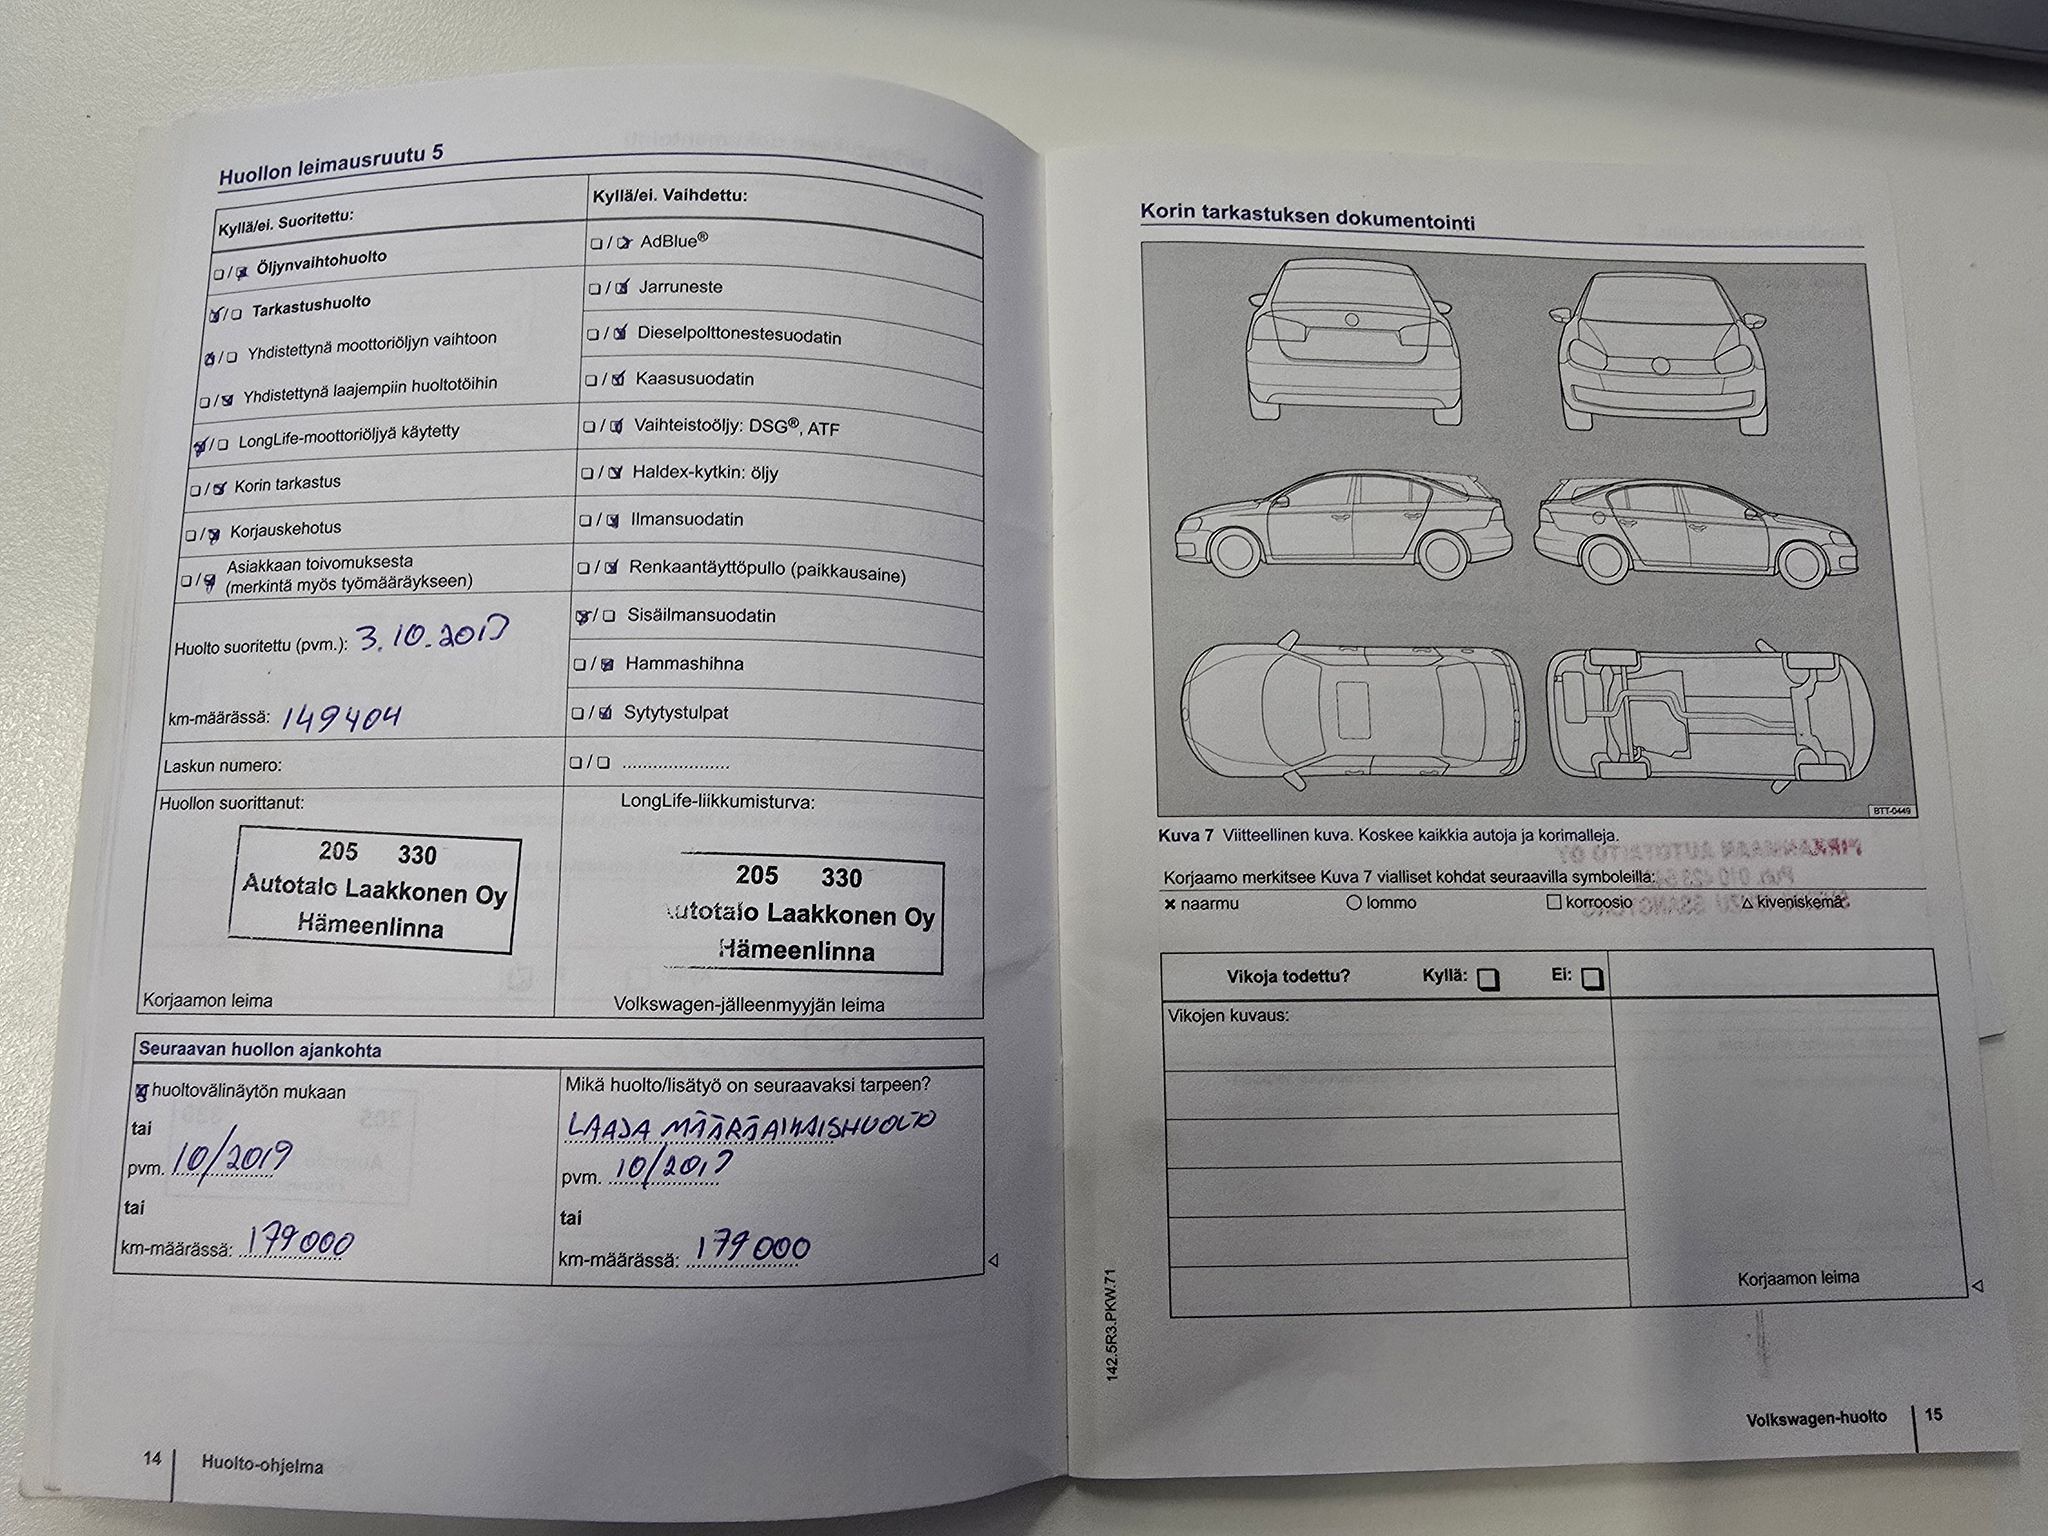 Huollon leimausruutu 5
Kyllä/ei. Suoritettu:
Öljynvaihtohuolto
Tarkastushuolto
Yhdistettynä moottoriöljyn vaihtoon
Yhdistettynä laajempiin huoltotöihin
LongLife-moottoriöljyä käytetty
Korin tarkastus
Korjauskehotus
Asiakkaan toivomuksesta
(merkintä myös työmääräykseen)
Huolto suoritettu (pvm.): 3.10.2017
km-määrässä: 149404
Laskun numero:
Huollon suorittanut:
205 330
Autotalo Laakkonen Oy
Hämeenlinna
Korjaamon leima
Kyllä/ei. Vaihdettu:
AdBlue®
Jarruneste
Dieselpolttonestesuodatin
Kaasusuodatin
Vaihteistoöljy: DSG®, ATF
Haldex-kytkin: öljy
Ilmansuodatin
Renkaantäyttöpullo (paikkausaine)
Sisäilmansuodatin
Hammashihna
Sytytystulpat
/ .....................
LongLife-liikkumisturva:
205 330
Autotalo Laakkonen Oy
Hämeenlinna
Volkswagen-jälleenmyyjän leima
Seuraavan huollon ajankohta
huoltovälinäytön mukaan
tai
pvm. 10/2019
tai
km-määrässä: 179000
Mikä huolto/lisätyö on seuraavaksi tarpeen?
LAAJA MÄÄRÄAIKAISHUOLTO
pvm. 10/2019
tai
km-määrässä: 179000
14 Huolto-ohjelma
Korin tarkastuksen dokumentointi
BTT-0449
Kuva 7 Viitteellinen kuva. Koskee kaikkia autoja ja korimalleja.
Korjaamo merkitsee Kuva 7 vialliset kohdat seuraavilla symboleilla:
naarmu
lommo
korroosio
kiveniskemä
Vikoja todettu? Kyllä: Ei:
Vikojen kuvaus:
Korjaamon leima
142.5R3.PKW.71
Volkswagen-huolto 15